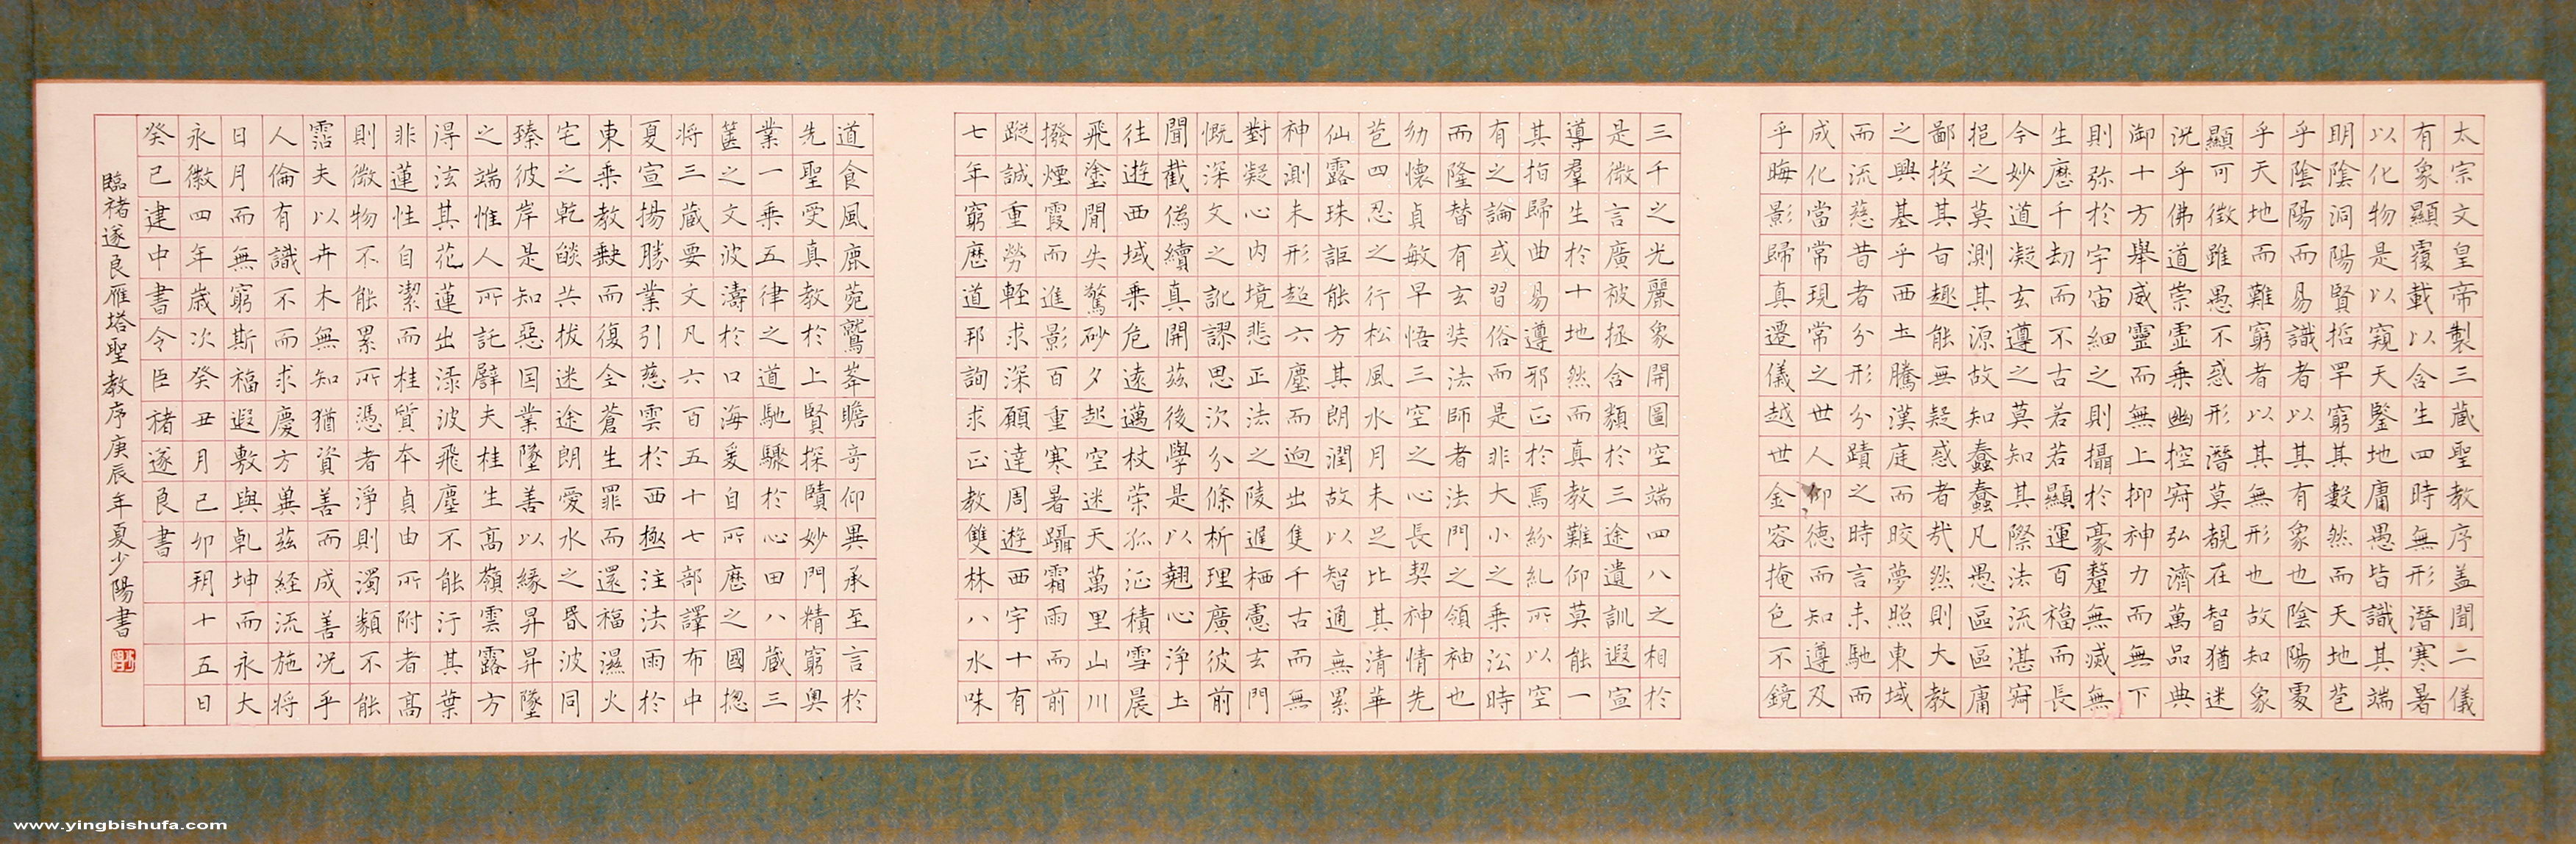 太宗文皇帝製三蔵聖教序盖聞二儀
有象顯覆載以含生四時無形潛寒暑
以化物是以窺天鑒地庸愚皆識其端
明陰洞陽賢哲罕窮其數然而天地苞
乎陰陽而易識者以其有象也陰陽處
乎天地而難窮者以其無形也故知象
顯可徵雖愚不惑形潛莫覩在智猶迷
況乎佛道崇虛乗幽控寂弘濟萬品典
御十方舉威靈而無上抑神力而無下
則弥於宇宙細之則攝於豪釐無滅無
生歷千劫而不古若若顯運百福而長
今妙道凝玄遵之莫知其際法流湛寂
挹之莫測其源故知蠢蠢凡愚區區庸
鄙投其旨趣能無疑惑者哉然則大教
之興基乎西土騰漢庭而皎夢照東域
而流慈昔者分形分蹟之時言未馳而
成化當常現常之世人仰德而知遵及
乎晦影歸真遷儀越世金容掩色不鏡
三千之光麗象開圖空端四八之相於
是微言廣被拯含類於三途遺訓遐宣
導羣生於十地然而真教難仰莫能一
其指歸曲易遵邪正於焉紛糺所以空
有之論或習俗而是非大小之乗沿時
而隆替有玄奘法師者法門之領袖也
幼懷貞敏早悟三空之心長契神情先
苞四忍之行松風水月未足比其清華
仙露珠詎能方其朗潤故以智通無累
神測未形超六塵而迥出隻千古而無
對凝心内境悲正法之陵遲栖慮玄門
慨深文之訛謬思次分條析理廣彼前
聞截偽續真開茲後學是以翹心浄土
往遊西域乗危遠邁杖策孤征積雪晨
飛塗閒失驚砂夕起空迷天萬里山川
撥煙霞而進影百重寒暑躡霜雨而前
蹤誠重勞輕求深願達周遊西宇十有
七年窮歷道邦詢求正教雙林八水味
道食風鹿菀鷲峯瞻奇仰異承至言於
先聖受真教於上賢探賾妙門精窮奥
業一乗五律之道馳驟於心田八蔵三
篋之文波濤於口海爰自所歷之國揔
将三蔵要文凡六百五十七部譯布中
夏宣揚勝業引慈雲於西極注法雨於
東乗教缺而復全蒼生罪而還福濕火
宅之乾燄共拔迷途朗愛水之昬波同
臻彼岸是知惡因業墜善以縁昇昇墜
之端惟人所託譬夫桂生高嶺雲露方
得泫其花蓮出渌波飛塵不能汙其葉
非蓮性自潔而桂質夲貞由所附者高
則微物不能累所憑者淨則濁類不能
霑夫以卉木無知猶資善而成善况乎
人倫有識不而求慶方兾茲経流施将
日月而無窮斯福遐敷與乹坤而永大
永徽四年歲次癸丑月己卯朔十五日
癸巳建中書令臣褚遂良書
臨褚遂良雁塔聖教序庚辰年夏少陽書
www.yingbishufa.com